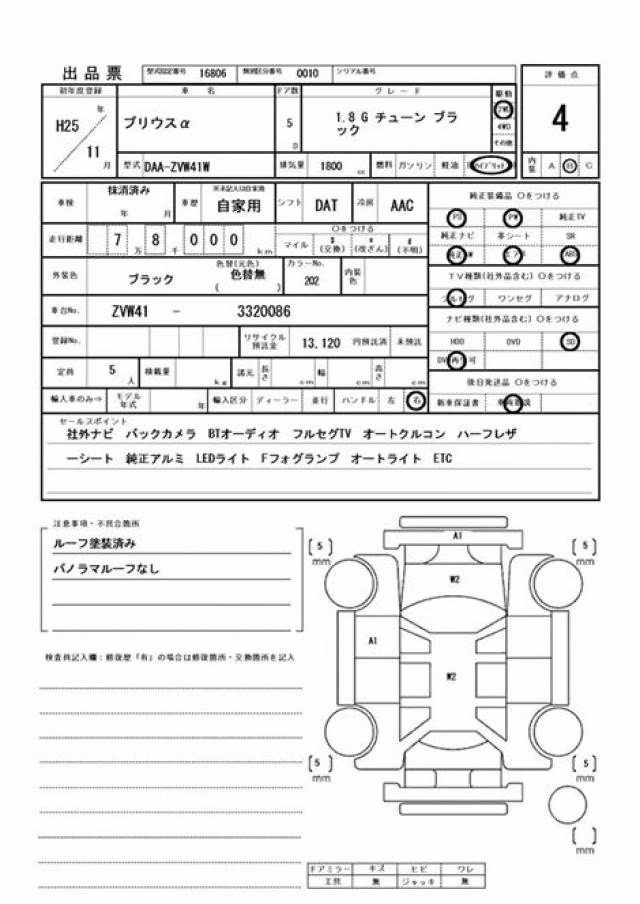 出品票 型式指定番号 16806 類別区分番号 0010 シリアル番号
評価点
初年度登録 車名 ドア数 グレード 駆動
H25 年 プリウスα 5 D 1.8 G チューン ブラ 2WD 4
ック 4WD
その他
11 月 型式 DAA-ZVW41W 排気量 1800 cc 燃料 ガソリン 軽油 ハイブリッド 内装 A B C
車検 抹消済み 年 月 車歴 ※未記入は自家用 自家用 シフト DAT 冷房 AAC 純正装備品 ○をつける
PS PW 純正TV
走行距離 7 万 8 千 0 0 0 km ○をつける
マイル $ (交換) * (改ざん) # (不明) 純正ナビ 革シート SR
純正AW エアB ABS
外装色 ブラック 色替(元色) 色替無 ( ) カラーNo. 202 内装色 TV種類(社外品含む) ○をつける
フルセグ ワンセグ アナログ
車台No. ZVW41 - 3320086 ナビ種類(社外品含む) ○をつける
登録No. リサイクル預託金 13,120 円預託済 未預託 HDD DVD SD
DVD再生可
定員 5 人 積載量 kg 諸元 長さ cm 幅 cm 高さ cm 後日発送品 ○をつける
輸入車のみ⇒ モデル年式 年 輸入区分 ディーラー 並行 ハンドル 左 右 新車保証書
セールスポイント
社外ナビ バックカメラ BTオーディオ フルセグTV オートクルコン ハーフレザ
ーシート 純正アルミ LEDライト Fフォグランプ オートライト ETC
注意事項・不具合箇所
ルーフ塗装済み
パノラマルーフなし
検査員記入欄:修復歴「有」の場合は修復箇所・交換箇所を記入
A1
[ 5 ] mm [ 5 ] mm
W2
A1
W2
[ 5 ] mm [ 5 ] mm
[ ] mm
ドアミラー キズ ヒビ ワレ
工具 無 ジャッキ 無